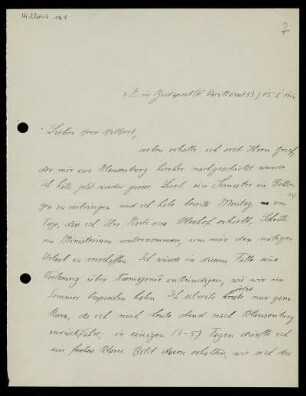 Hilbert
7
z. Z. in Budapest
Lieber Herr Hilbert,
soeben erhalte ich erst Ihren Brief,
der mir aus Klausenburg hierher nachgeschickt wurde.
Ich hätte jetzt wieder grosse Lust ein Semester in Göttin-
gen zu verbringen und ich habe bereits Montag
Tage, da ich Ihre Karte aus erhielt, Schritte
im Ministerium unternommen, um mir den nötigen
Urlaub zu verschaffen. Ich würde in diesem Falle eine
Vorlesung über ankündigen, wie wir im
Sommer besprochen haben. Ich schreibe heute nur ganz
kurz, da ich noch heute abend nach Klausenburg
zurückfahre, in einigen (4-5) Tagen dürfte ich
ein davon erhalten, wie sich das